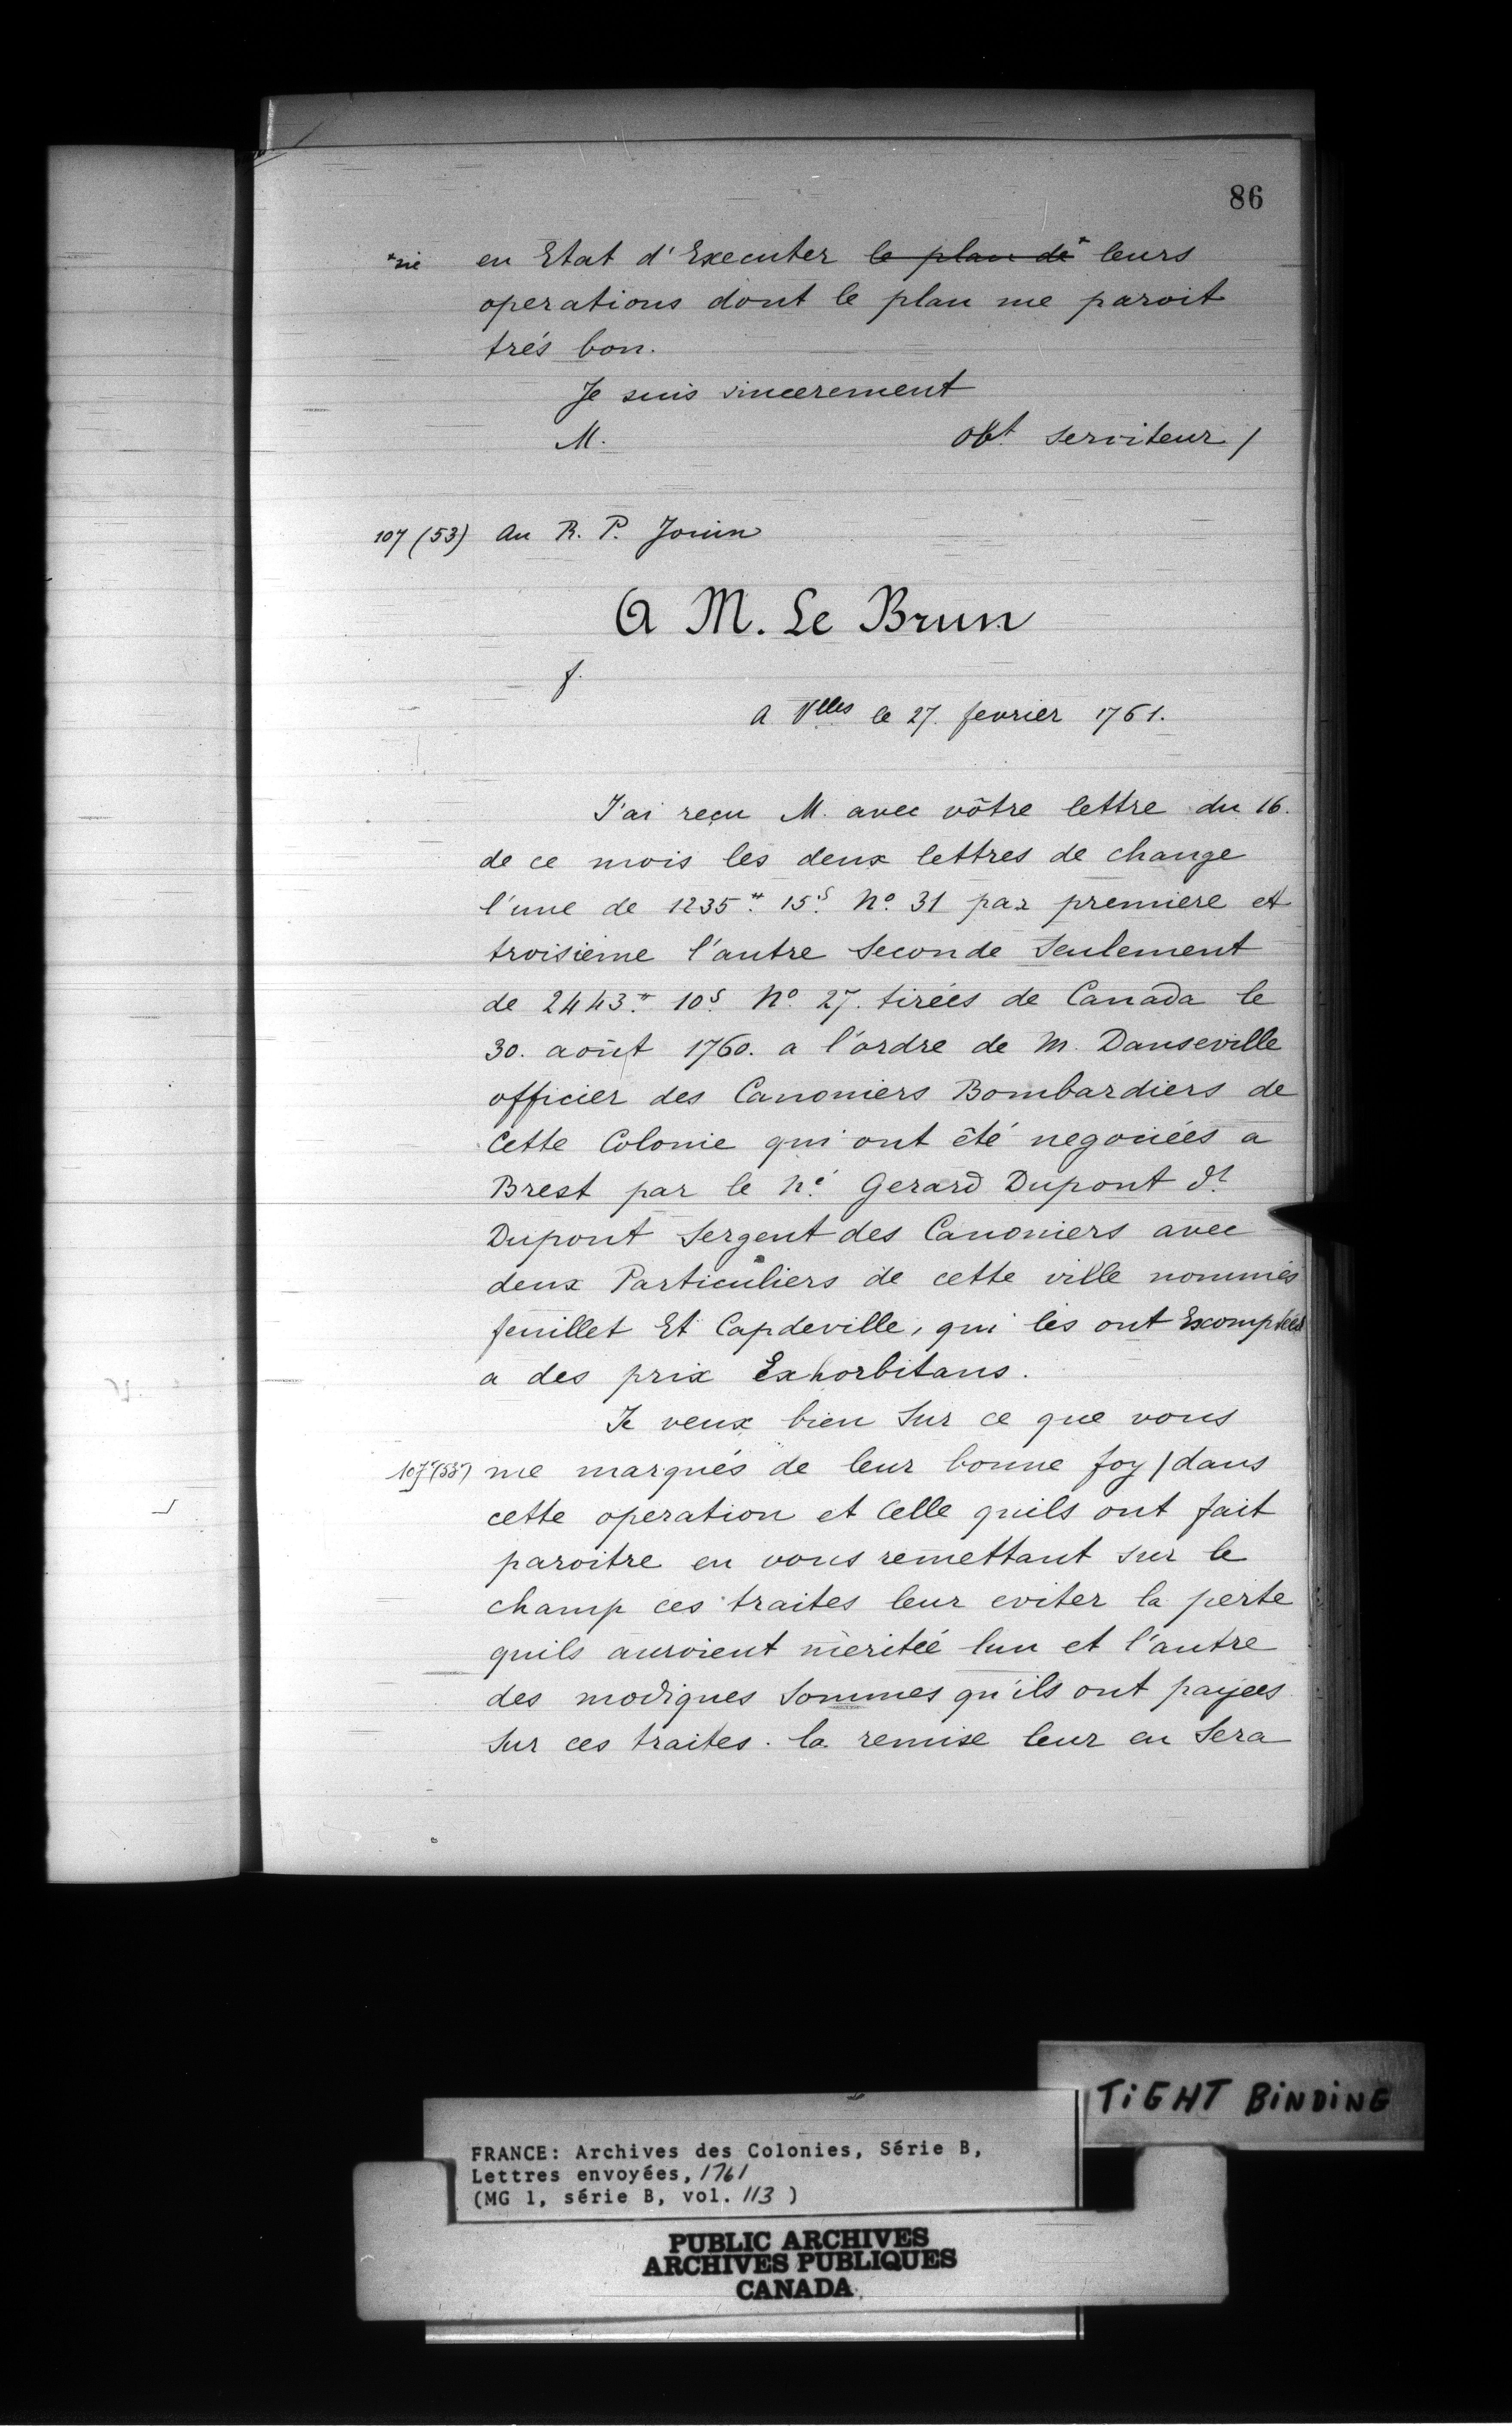 86
*sic en Etat d'Executer le plan de* leurs
operations dont le plan me paroit
trés bon.
Je suis sincerement
M. Obt serviteur /
107 (53) Au R. P. Jouin
A M. Le Brun
f.
A Vlles le 27. fevrier 1761.
J'ai reçu M. avec vôtre lettre du 16.
de ce mois les deux lettres de change
l'une de 1235.tt 15.s No. 31 par premiere et
troisieme l'autre Seconde Seulement
de 2443.tt 10.s No. 27. tirées de Canada le
30. août 1760. a l'ordre de M. Danseville
officier des Canoniers Bombardiers de
Cette Colonie qui ont êté negociées a
Brest par le né. Gerard Dupont dt.
Dupont Sergent des Canoniers avec
deux Particuliers de cette ville nommés
feuillet Et Capdeville, qui les ont Excomptées
a des prix Exhorbitans.
Je veux bien Sur ce que vous
107 (53) me marqués de leur bonne foy / dans
cette operation et Celle quils ont fait
paroitre en vous remettant sur le
champ ces traites leur eviter la perte
quils auroient meritée lun et l'autre
des modiques Sommes qu'ils ont payees
Sur ces traites. la remise leur en Sera
TIGHT BINDING
FRANCE: Archives des Colonies, Série B,
Lettres envoyées, 1761
(MG 1, série B, vol. 113 )
PUBLIC ARCHIVES
ARCHIVES PUBLIQUES
CANADA